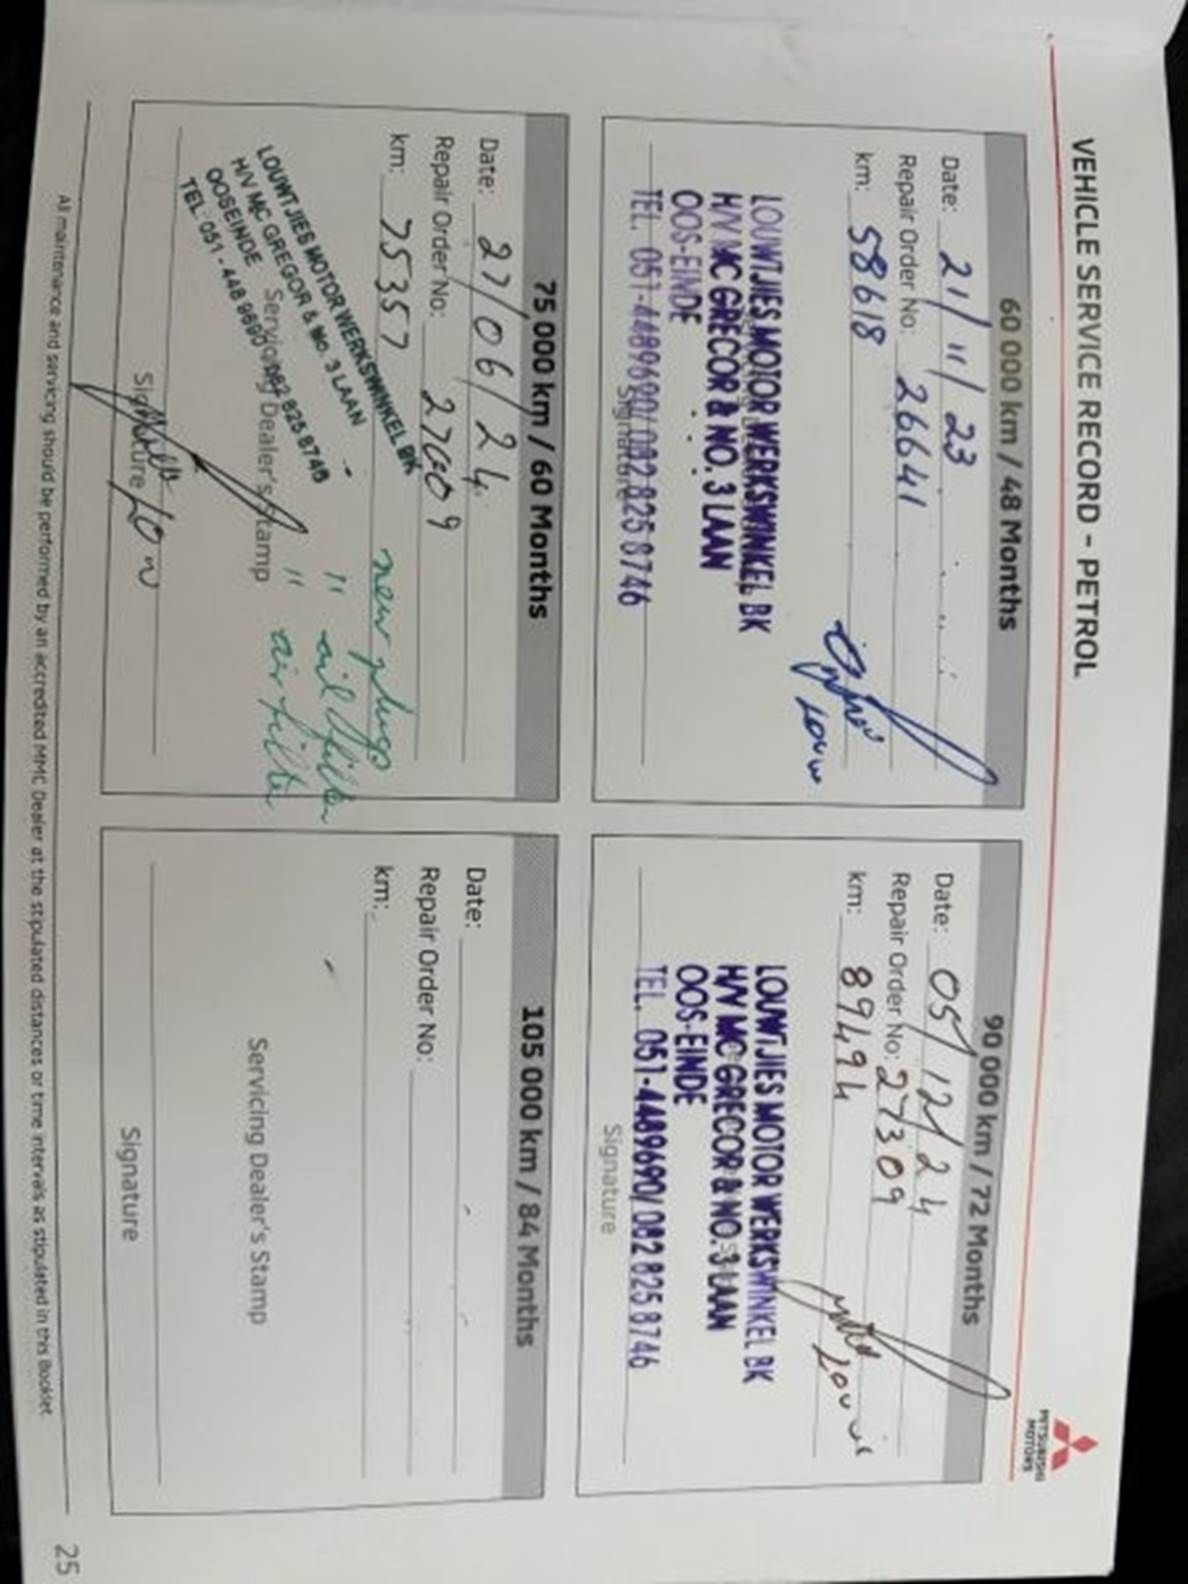 VEHICLE SERVICE RECORD – PETROL
MITSUBISHI
MOTORS
60 000 km / 48 Months
Date: 21/11/23
Repair Order No: 26641
km: 58618
LOUWTJIES MOTOR WERKSWINKEL BK
H/V MC GREGOR & NO. 3 LAAN
OOS-EINDE
TEL. 051-4489690/082 825 8746
Signature
Louw
90 000 km / 72 Months
Date: 05/12/24
Repair Order No: 27309
km: 89494
LOUWTJIES MOTOR WERKSWINKEL BK
H/V MC GREGOR & NO. 3 LAAN
OOS-EINDE
TEL. 051-4489690/082 825 8746
Signature
75 000 km / 60 Months
Date: 27/06/24
Repair Order No: 27009
km: 75357
new plugs
" oil filter
" air filter
LOUWTJIES MOTOR WERKSWINKEL BK
H/V MC GREGOR & No. 3 LAAN
OOSEINDE
TEL: 051 - 448 9690 / 082 825 8746
Servicing Dealer's Stamp
Signature
105 000 km / 84 Months
Date:
Repair Order No:
km:
Servicing Dealer's Stamp
Signature
All maintenance and servicing should be performed by an accredited MMC Dealer at the stipulated distances or time intervals as stipulated in this Booklet
25